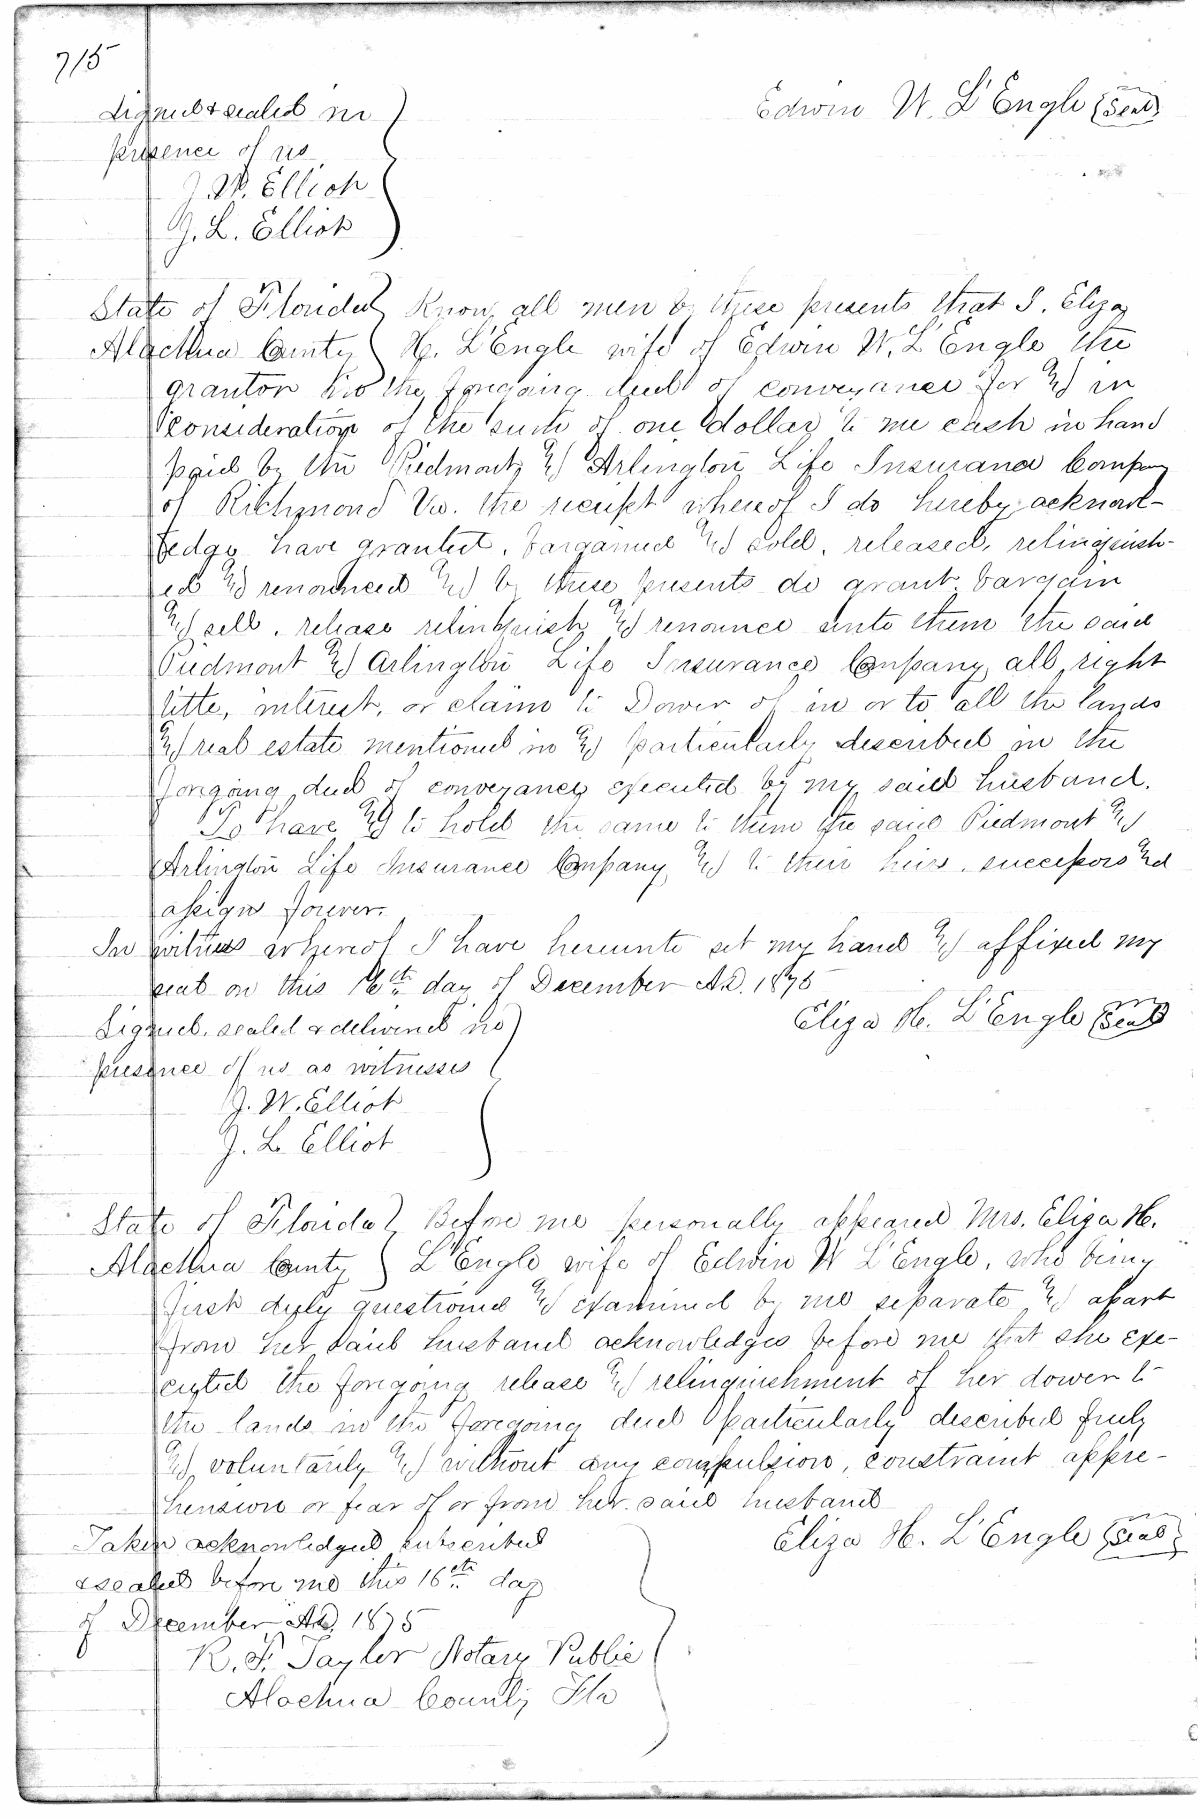 715
Edwin W. L'Engle (Seal)
Signed & sealed in
presence of us
J. W. Elliot
J. L. Elliot
State of Florida } Know all men by these presents that I, Eliza
Alachua County } H. L'Engle wife of Edwin W. L'Engle the
grantor in the foregoing deed of conveyance for and in
consideration of the sum of one dollar to me cash in hand
paid by the Piedmont and Arlington Life Insurance Company
of Richmond Va. the receipt whereof I do hereby acknowl-
edge have granted, bargained and sold, released, relinquish-
ed and renounced and by these presents do grant bargain
and sell, release relinquish and renounce unto them the said
Piedmont and Arlington Life Insurance Company all right
title, interest, or claim to Dower of in or to all the lands
and real estate mentioned in and particularly described in the
foregoing deed of conveyance executed by my said husband.
To have and to hold the same to them the said Piedmont and
Arlington Life Insurance Company and to their heirs, successors and
assigns forever.
In witness whereof I have hereunto set my hand and affixed my
seal on this 16th day of December A.D. 1875
Eliza H. L'Engle (Seal)
Signed, sealed & delivered in
presence of us as witnesses
J. W. Elliot
J. L. Elliot
State of Florida } Before me personally appeared Mrs. Eliza H.
Alachua County } L'Engle wife of Edwin W L'Engle, who being
first duly questioned and examined by me separate and apart
from her said husband acknowledges before me that she exe-
cuted the foregoing release and relinquishment of her dower to
the lands in the foregoing deed particularly described freely
and voluntarily and without any compulsion, constraint appre-
hension or fear of or from her said husband
Eliza H. L'Engle (Seal)
Taken acknowledged, subscribed
& sealed before me this 16th day
of December A.D. 1875
R. F. Taylor Notary Public
Alachua County Fla